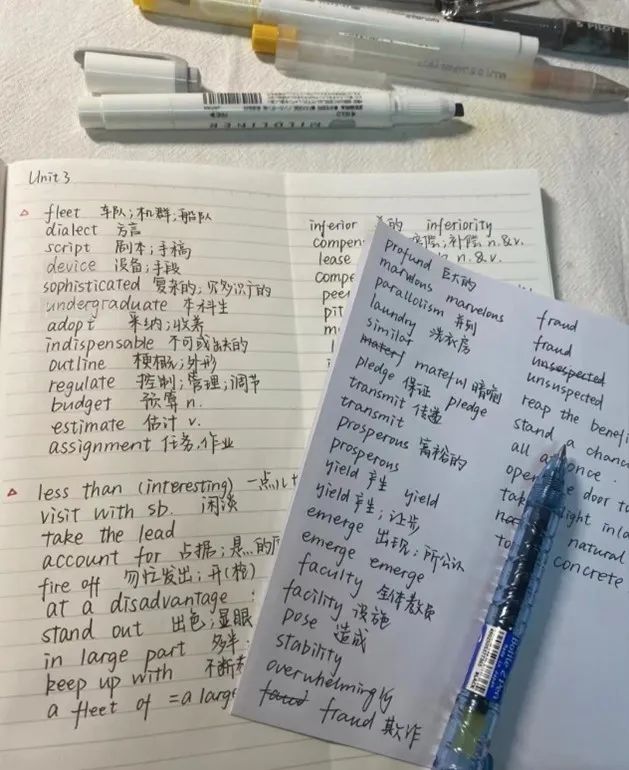 PILOT
MUJI
MILDLINER
JAPAN
Unit 3
fleet 车队;机群;船队
dialect 方言
script 剧本;手稿
device 设备;手段
sophisticated 复杂的;见多识广的
undergraduate 本科生
adopt 采纳;收养
indispensable 不可或缺的
outline 梗概;外形
regulate 控制;管理;调节
budget 预算 n.
estimate 估计 v.
assignment 任务,作业
less than (interesting) 一点儿
visit with sb. 闲谈
take the lead
account for 占据;是…的
fire off 匆忙发出;开(枪)
at a disadvantage
stand out 出色;显眼
in large part 多半;
keep up with 不断
a fleet of =a large
inferior 的 inferiority
compen 补偿 n.&v.
lease n.&v.
compe
peer
pit
profund 巨大的
marvlous marvelous
parallolism 并列
laundry 洗衣房
similar
mateful 晴朗
pledge 保证 pledge
transmit 传递
transmit
prosperous 富裕的
prosperous
yield 产生 yield
yield 产生;让步
emerge 出现;所公认
emerge emerge
faculty 全体教员
facility 设施
pose 造成
stability
overwhelmingly
fraud 欺诈
fraud
fraud
unsespected
unsuspected
reap the benefi
stand a chanc
all a once.
open e door t
tak ight into
natural
to concrete